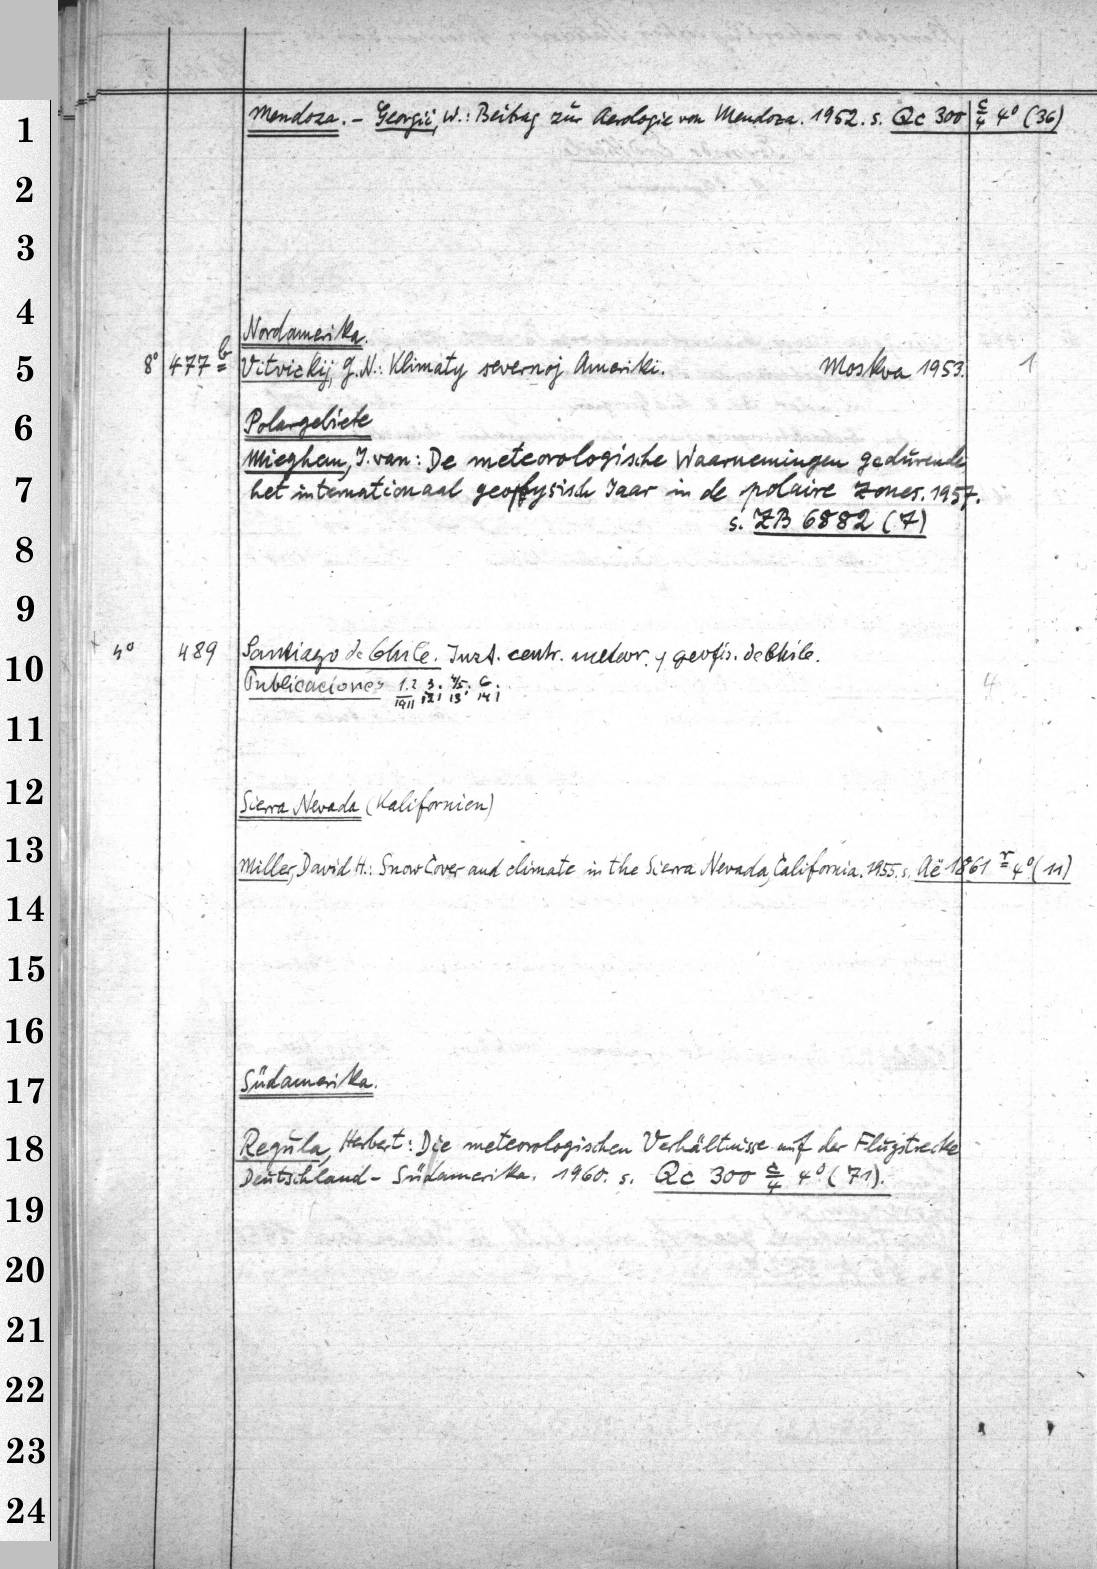 1 Mendoza. – Georgii, W.: Beitrag zur Aerologie von Mendoza. 1952. s. Qc 300 c/4 4° (36)
2
3
4 Nordamerika.
5 8° 477 b Vitvickij, G. N.: Klimaty severnoj Ameriki. Moskva 1953. 1
6 Polargebiete
Mieghem, J. van: De meteorologische Waarnemingen gedurende
7 het internationaal geofysisch Jaar in de polaire Zones. 1957.
s. ZB 6882 (7)
8
9
10 4° 489 Santiago de Chile. Inst. centr. meteor. y geofis. de Chile.
Publicaciones 1.2 3. 4/5. 6. 4
1911 12 13 14
11
12 Sierra Nevada (Kalifornien)
13 Miller, David H.: Snow Cover and climate in the Sierra Nevada, California. 1955. s. Aë 1861 r 4° (11)
14
15
16
17 Südamerika.
18 Regula, Herbert: Die meteorologischen Verhältnisse auf der Flugstrecke
Deutschland – Südamerika. 1960. s. Qc 300 c/4 4° (71).
19
20
21
22
23
24